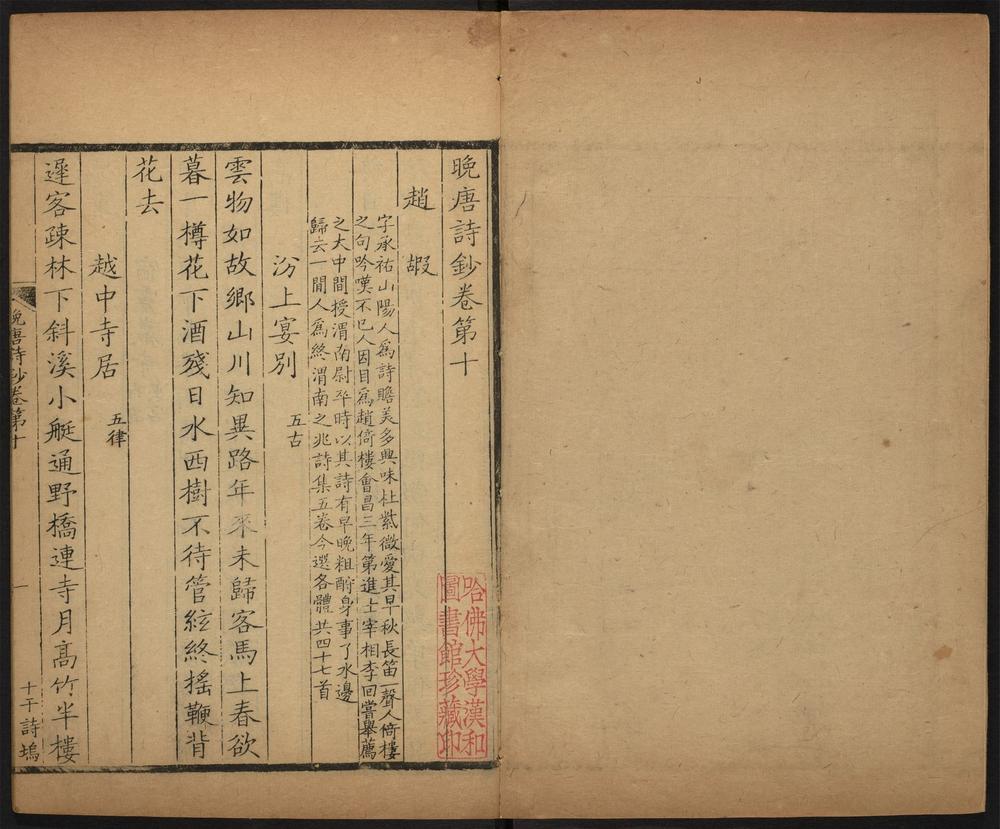 晚唐詩鈔卷第十
趙嘏
字承祐山陽人為詩贍美多興味杜紫微愛其早秋長笛一聲人倚樓
之句吟嘆不已人因目為趙倚樓會昌三年第進士宰相李回嘗舉薦
之大中間授渭南尉卒時以其詩有早晚粗酧身事了水邊
歸去一閒人為終渭南之兆詩集五卷今選各體共四十七首
汾上宴別 五古
雲物如故鄉山川知異路年來未歸客馬上春欲
暮一樽花下酒殘日水西樹不待管絃終搖鞭背
花去
越中寺居 五律
遲客疎林下斜溪小艇通野橋連寺月高竹半樓
晚唐詩鈔卷第十
一
十干詩塢
哈佛大學漢和
圖書館珍藏印